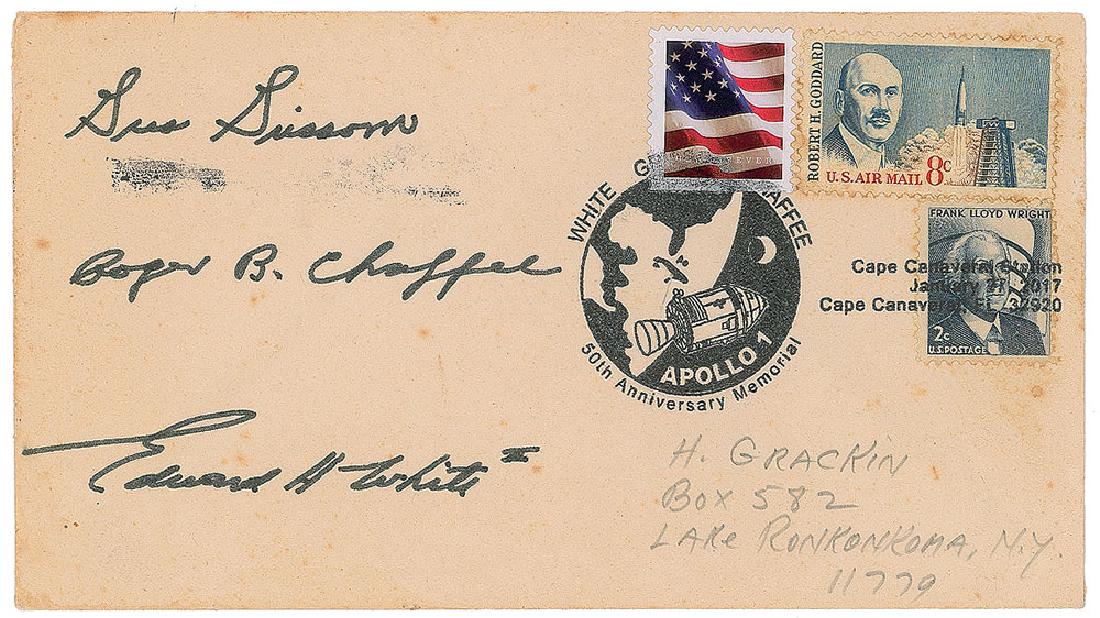 Gus Grissom
Roger B. Chaffee
Edward H White II
FOREVER
ROBERT H. GODDARD
U.S. AIR MAIL 8c
FRANK LLOYD WRIGHT
2c
U.S. POSTAGE
WHITE CHAFFEE
APOLLO 1
50th Anniversary Memorial
Cape Canaveral Station
January 27, 2017
Cape Canaveral, FL 32920
H. GRACKIN
Box 582
LAKE RONKONKOMA, N.Y.
11779